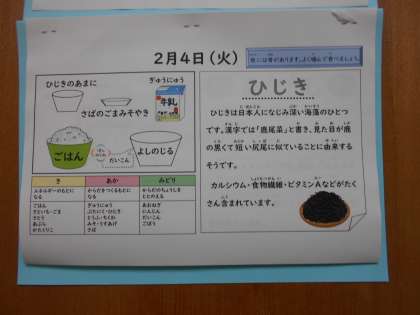 2月4日（火）
魚には骨があります。よく噛んで食べましょう。
ひじきのあまに
ぎゅうにゅう
牛乳
さばのごまみそやき
ごはん
だいこん
よしのじる
き
あか
みどり
エネルギーのもとに
なる
からだをつくるもとに
なる
からだのちょうしを
ととのえる
ごはん
さといも・ごま
さとう
あぶら
かたくりこ
ぎゅうにゅう
ぶたにく・ひじき
とうふ・ちくわ
みそ・うすあげ
さば
あおねぎ
にんじん
だいこん
ごぼう
ひじき
ひじきは日本人になじみ深い海藻のひとつ
です。漢字では「鹿尾菜」と書き、見た目が鹿
の黒くて短い尻尾に似ていることに由来する
そうです。
カルシウム・食物繊維・ビタミンAなどがたく
さん含まれています。